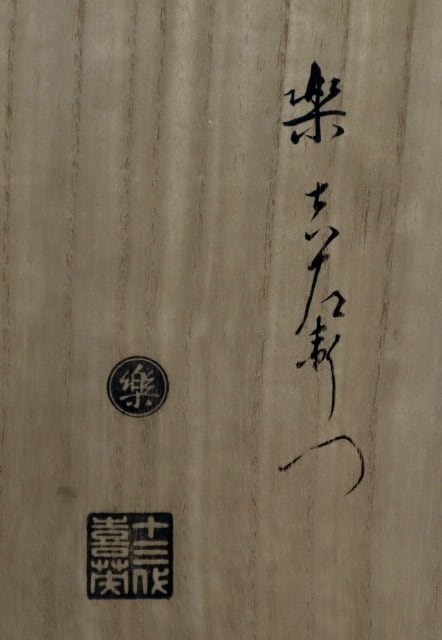 楽吉左衛門
樂
十三代
喜英